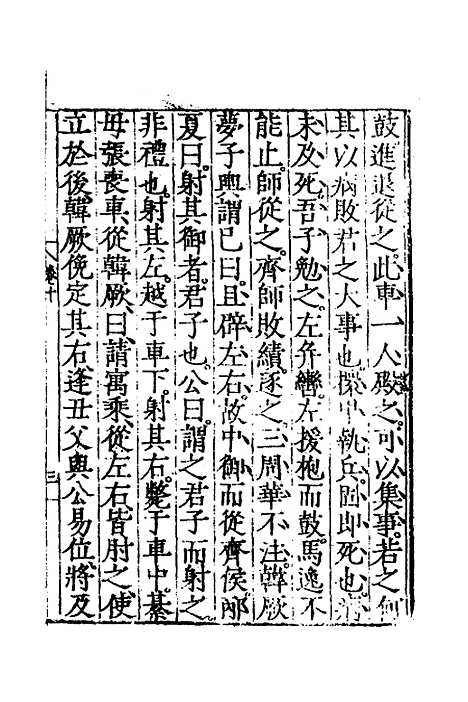 鼓進退從之。此車一人殿之。可以集事。若之何
其以病敗君之大事也。擐甲執兵。固即死也。病
未及死。吾子勉之。左并轡。右援枹而鼓。馬逸不
能止。師從之。齊師敗績。逐之。三周華不注。韓厥
夢子輿謂己曰。且辟左右。故中御而從齊侯。邴
夏曰。射其御者。君子也。公曰。謂之君子而射之
非禮也。射其左。越于車下。射其右。斃于車中。綦
毋張喪車。從韓厥。曰。請寓乘。從左右。皆肘之。使
立於後。韓厥俛定其右。逢丑父與公易位。將及
卷十
三